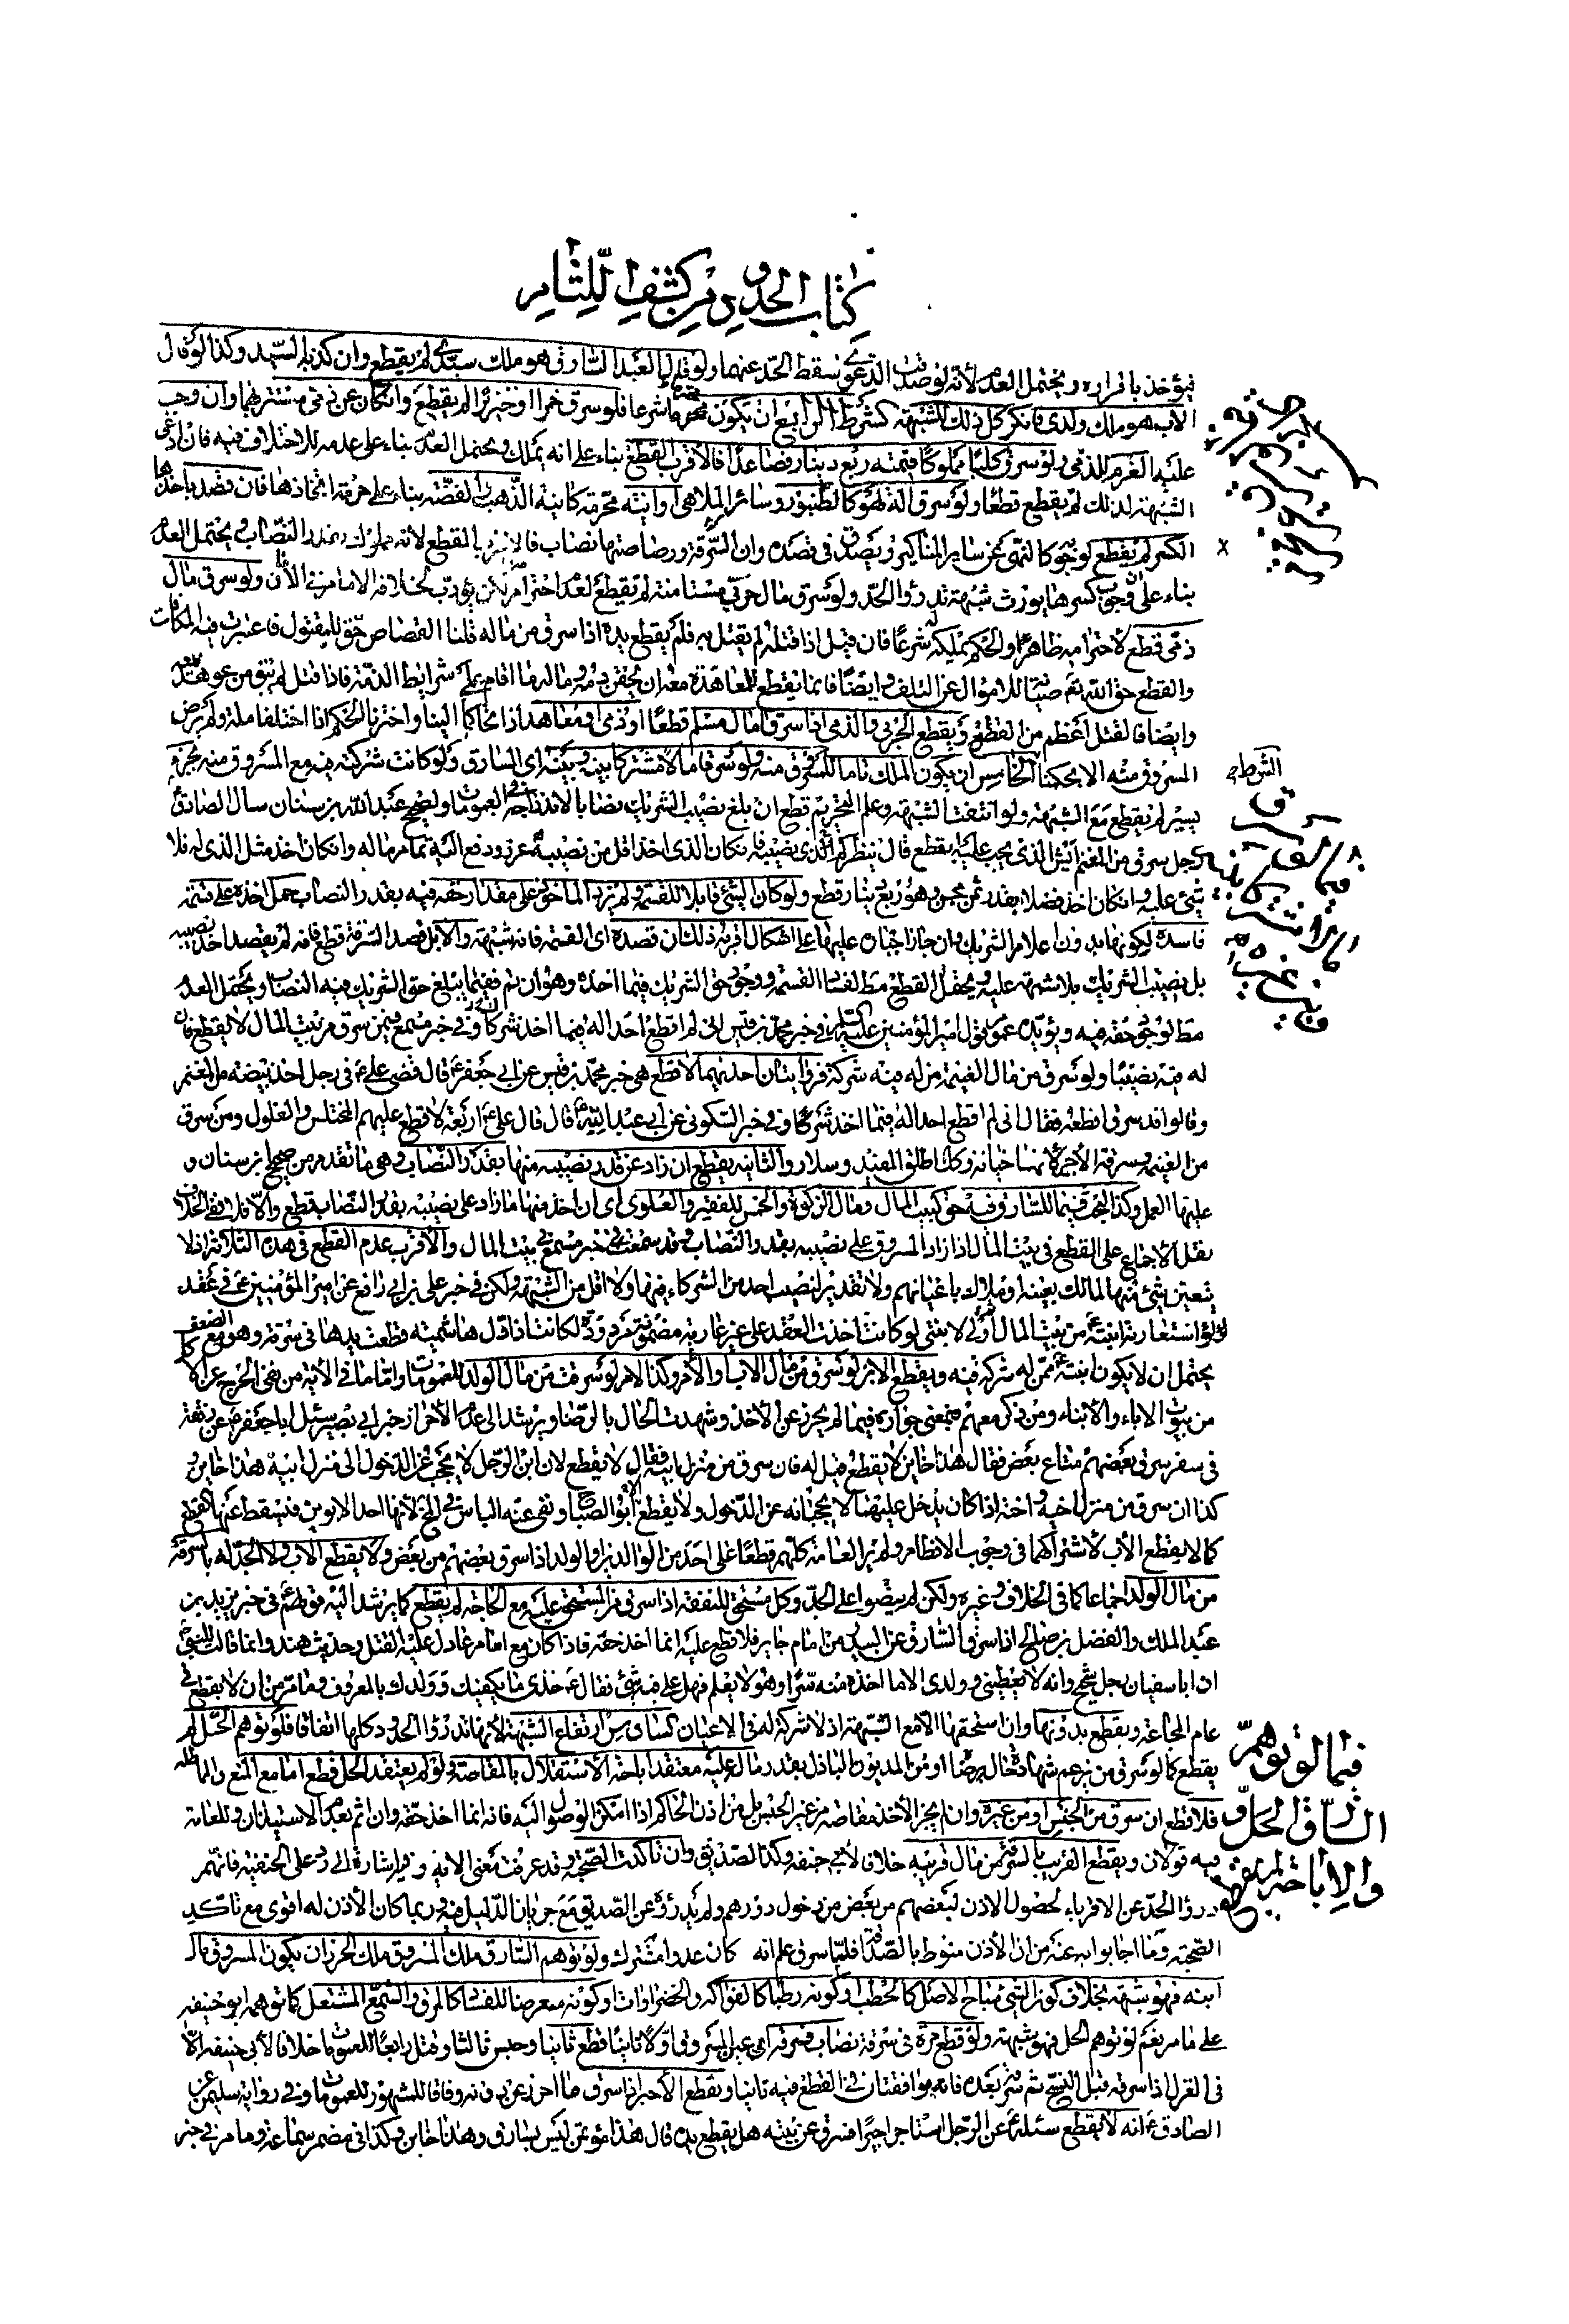 كتاب الحدود من كشف اللثام
فيؤخذ باقراره ويحتمل العدم لأنه لو صدقت الدعوى سقط الحد عنهما ولو قال العبد السارق هو ملك سيدى لم يقطع وان كذبه السيد وكذا لو قال
الأب هو ملك ولدى فانكر كل ذلك للشبهة كشرط الرابع ان يكون محترما شرعا فلو سرق خمرا او خنزيرا لم يقطع وان كان عن ذمى مستتر بهما وان وجب
عليه الغرم للذمى ولو سرق كلبا مملوكا قيمته ربع دينار فصاعدا فالأقرب القطع بناء على انه يملك ويحتمل العدم بناء على عدمه للاختلاف فيه فان ادعى
الشبهة لذلك لم يقطع قطعا ولو سرق الة لهو كالطنبور وسائر الملاهى او انية محرمة كانية الذهب والفضة بناء على حرمة اتخاذها فان قصد باخذها
الكسر لم يقطع لوجوبه كالنهى عن ساير المناكير ويصدق فى قصده وان السرقة ورضاضها نصاب فالاقرب القطع لأنه مملوك بقدر النصاب ويحتمل العدم
بناء على ان وجوب كسرها يورث شبهة تدرؤا الحد ولو سرق مال حربى مستامن لم يقطع لعدم احترامه لكن يؤدب لمخالفة الامام فى الأمان ولو سرق مال
ذمى قطع لأحترامه ظاهرا والحكم بملكيته شرعا فان قيل اذا قتله لم يقتل به فلم يقطع يده اذا سرق من ماله قلنا القصاص حق للمقتول فاعتبرت فيه المكافات
والقطع حق الله تعم صيانة للاموال عن التلف وايضا فانما يقطع للمعاهدة معه ان يحقن دمه وماله ما اقام على شرايط الذمة فاذا قتل لم يبق من عوهد
وايضا فالقتل اعظم من القطع ويقطع الحربى والذمى اذا سرق مال مسلم قطعا او ذمى او معاهد اذا تحاكما الينا واخترنا الحكم اذا اختلفا ملة ولم يرض
المسروق منه الا بحكمنا الخامس ان يكون الملك تاما للمسروق منه فلو سرق مالا مشتركا بينه وبينه اى السارق ولو كانت شركته فيه مع المسروق منه بجزء
يسير لم يقطع مع الشبهة ولو انتفت الشبهة وعلم التحريم قطع ان بلغ نصيب الشريك نصابا لاندراجه فى العمومات ولصحيح عبد الله بن سنان سال الصادق ع
رجل سرق من المغنم ايش الذى يجب عليه ايقطع قال ينظر كم الذى نصيبه فان كان الذى اخذ اقل من نصيبه عزر ودفع اليه تمام ماله وان كان اخذ مثل الذى له فلا
شىء عليه وان كان اخذ فضلا بقدر ثمن مجن وهو ربع دينار قطع ولو كان الشئ قابلا للقسمة ولم يزد الماخوذ على مقدار حقه فيه بقدر النصاب حمل اخذه على قسمة
فاسدة لكونها بدون اعلام الشريك وان جاز اجباره عليها على اشكال اقربه ذلك ان قصده اى القسمة فانه شبهة والا بل قصد السرقة قطع فانه لم يقصد اخذ نصيبه
بل نصيب الشريك بلا شبهة عليه ويحتمل القطع مط لفساد القسمة ووجود حق الشريك فيما اخذه وهو ان تم ففيما يبلغ حق الشريك فيه النصاب ويحتمل العدم
مط لوجود حقه فيه ويؤيده عموم قول امير المؤمنين عليه السلام فى خبر محمد بن قيس انى لم اقطع احدا له فيما اخذ شرك وفى خبر مسمع فيمن سرق من بيت المال لا يقطع فان
له فيه نصيبا ولو سرق من مال الغنيمة من له فيه شركة فروايتان احديهما لا قطع هى خبر محمد بن قيس عن ابى جعفر ع قال قضى على ع فى رجل اخذ بيضة من المغنم
وقالوا قد سرق اقطعه فقال انى لم اقطع احدا له فيما اخذ شرك وفى خبر السكونى عن ابى عبد الله ع قال قال على ع اربعة لا قطع عليهم المختلس والغلول ومن سرق
من الغنيمة وسرقة الأجير لأنها خيانة وكك اطلق المفيد وسلار والثانيه يقطع ان زاد عن قدر نصيبه منها بقدر النصاب وهى ما تقدم من صحيح ابن سنان و
عليها العمل وكذا البحث فيما للسارق فيه حق كبيت المال ومال الزكوة والخمس للفقير والعلوى اى ان اخذ منها ما زاد على نصيبه بقدر النصاب قطع والا فلا ففى الخلاف
نقل الاجماع على القطع فى بيت المال اذا زاد المسروق على نصيبه بقدر النصاب وقد سمعت خبر مسمع فى بيت المال والأقرب عدم القطع فى هذه الثلاثة اذ لا
يتعين شئ منها لمالك بعينه او ملاك باعيانهم ولا تقدير لنصيب احد من الشركاء فيها ولا اقل من الشبهة ولكن فى خبر على بن ابى رافع عن امير المؤمنين ع فى عقد
لؤلؤ استعارته ابنته ع من بيت المال اولى لابنتى لو كانت اخذت العقد على غير عارية مضمونة مردودة لكانت اذا اول هاشمية قطعت يدها فى سرقة وهو مع الضعف
يحتمل ان لا يكون ابنته ع ممن له شركة فيه ويقطع الابن لو سرق من مال الأب او الأم وكذا الام لو سرقت من مال الولد للعمومات واما ما فى الأية من نفى الحرج عن الأكل
من بيوت الاباء والأبناء ومن ذكر معهم فبمعنى جوازه فيما لم يحرز عن الأخذ وشهدت الحال بالرضا ويرشد الى عدم الأحراز خبر ابى بصير سئل ابا جعفر ع عن رفقة
فى سفر سرق بعضهم متاع بعض فقال هذا خاين لا يقطع قيل له فان سرق من منزل ابيه فقال لا يقطع لان ابن الرجل لا يحجب عن الدخول الى منزل ابيه هذا خاين و
كذا ان سرق من منزل اخيه او اخته اذا كان يدخل عليهما لا يحجبانه عن الدخول ولا يقطع الأم ابو الصلاح ونفى عنه الباس فى المخ لأنها احد الابوين فيسقط عنها القطع
كما لا يقطع الأب لأشتراكهما فى وجوب الاعظام ولم ير العامة كلهم قطعا على احد من الوالدين او الولد اذا سرق بعضهم من بعض ولا يقطع الاب ولا الجد له بالسرقة
من مال الولد اجماعا كما فى الخلاف وغيره ولكن لم ينصوا على الجد وكل مستحق للنفقة اذا سرق من المستحق عليه مع الحاجة لم يقطع كما يرشد اليه قولهم ع فى خبر يزيد بن
عبد الملك والفضل بن صالح اذا سرق السارق عن البيدر من امام جاير فلا قطع عليه انما اخذ حقه فاذا كان مع امام عادل عليه القتل وحديث هند وانها قالت للنبى ص
ان ابا سفيان رجل شحيح وانه لا يعطينى وولدى الا ما اخذه منه سرا وهو لا يعلم فهل على فيه شئ فقال ع خذى ما يكفيك وولدك بالمعروف وما مر من ان لا يقطع فى
عام المجاعة ويقطع بدونها وان استحقها الا مع الشبهة اذ لا شركة له فى الاعيان كساق من ارتفاع الشبهة لأنها تدرؤ الحدود كلها اتفاقا فلو توهم الحل لم
يقطع كما لو سرق من بزعم شهادة حال برضا او من المديون الباذل بقدر ماله عليه معتقدا باحة الأستقلال بالمقاصة ولو لم يعتقد الحل قطع اما مع المنع او المماطلة
فلا قطع ان سرق من الجنس او من غيره وان لم يجز الأخذ مقاصة من غير الجنس بل من اذن الحاكم اذا امكن الوصول اليه فانه انما اخذ حقه وان اثم بعدم الاستيذان وللعامة
فيه قولان ويقطع القريب بالسرقة من مال قريبه خلافا لأبى حنيفة وكذا الصديق وان تاكدت الصحبة وقد عرفت معنى الاية وفيه اشارة الى رد على الحنفية فانهم
درؤ الحد عن الاقرباء لحصول الاذن لبعضهم من بعض من دخول دورهم ولم يدرؤ عن الصديق مع جريان الدليل فيه وربما كان الأذن له اقوى مع تاكد
الصحبة وما اجابوا به عنه من ان الأذن منوط بالصداقة فلما سرق علم انه كان عدوا مشترك ولو توهم السارق ملك المسروق او ملك الحرز او كون المسروق مال
ابنه فهو شبهة بخلاف كون الشئ مباح الاصل كالحطب او كونه رطبا كالفواكه والخضراوات او كونه معرضا للفساد كالمرق والشمع المشتعل كما توهمه ابو حنيفة
على ما مر نعم لو توهم الحل فهو شبهة ولو قطع مرة فى سرقة نصاب فسرقه اى عين المسروق اولا ثانيا قطع ثانيا وحبس ثالثا وقتل رابعا للعمومات خلافا لأبى حنيفة الا
فى الغزل اذا سرقه قبل النسج ثم سرقه بعده فانه يوافقنا فى القطع فيه ثانيا ويقطع الأجير اذا سرق ما احرز عن دونه وفاقا للمشهور للعمومات وفى رواية سليمن عن
الصادق ع انه لا يقطع سئله ع عن الرجل استاجر اجيرا فسرق عن بيته هل يقطع يده قال هذا مؤتمن ليس بسارق وهذا خاين وكذا فى مضمر سماعة وما مر فى خبر
الشرط
فيما لو توهم
السارق الحل
والاباحة لم يقطع